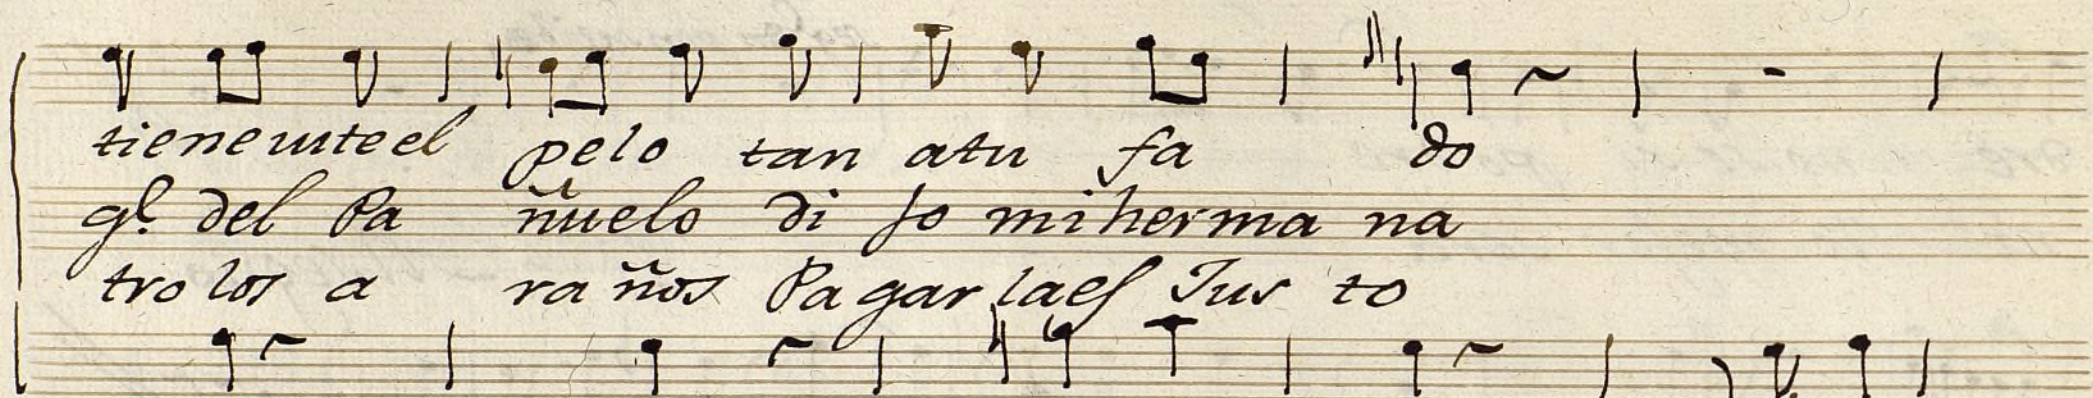 tiene usteel pelo tan atu fa do
ql. del Pa ñuelo di jo mi herma na
tro los a raños Pagar laes Jus to